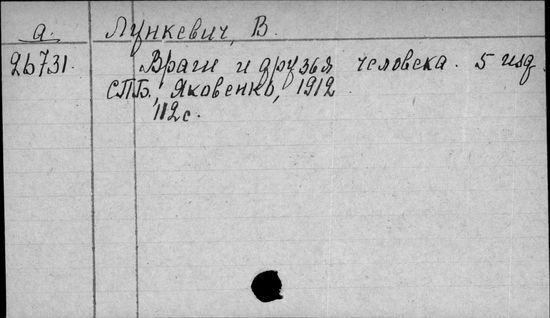 а. Лункевич, В.
26731. Враги и друзья человека. 5 изд.
СПБ, Яковенко, 1912
112 с.